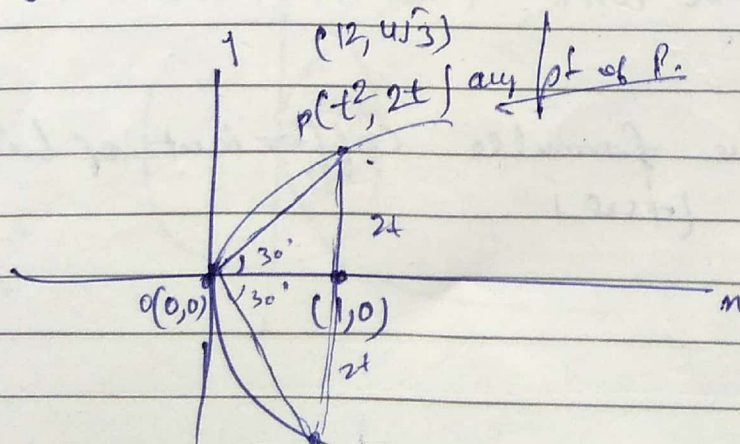 y
(12, 4√3)
P(t², 2t) any pt of P.
2t
30°
O(0,0)
30°
(1,0)
x
2t